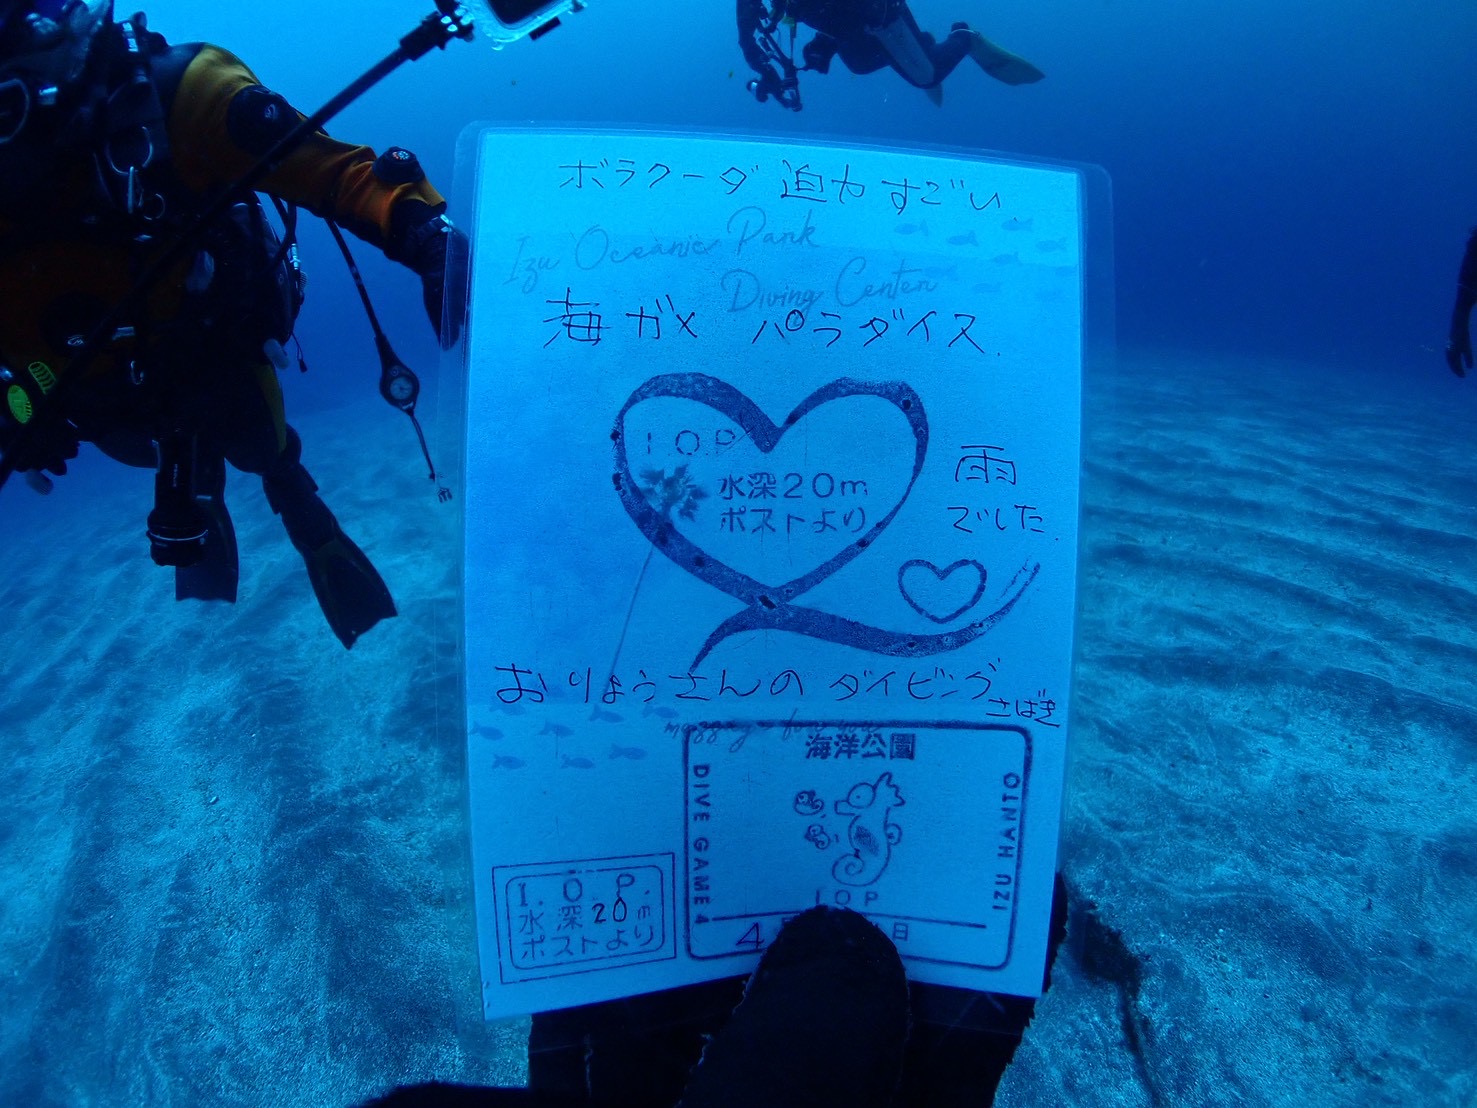 ボラクーダ 迫力 すごい
Izu Oceanic Park
Diving Center
海ガメ パラダイス.
I.O.P
水深20m
ポストより
雨
でした.
おりょうさんの ダイビング
さばき
海洋公園
DIVE GAME 4
IZU HANTO
I O P
4
日
I. O. P.
水深20m
ポストより